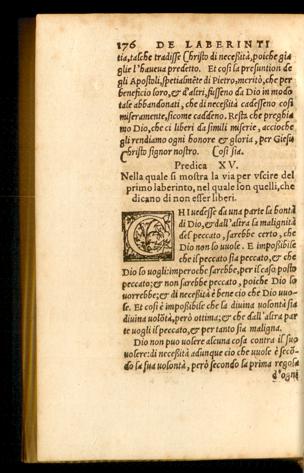 176 DE LABERINTI
tia, talche tradisse Christo di necessità, poiche gia
glie l'haueua predetto. Et cosi la presuntion de
gli Apostoli, spetialmẽte di Pietro, meritò, che per
beneficio loro, & d'altri, fussono da Dio in modo
tale abbandonati, che di necessità cadessono cosi
miseramente, sicome caddono. Resta che preghia
mo Dio, che ci liberi da simili miserie, accioche
gli rendiamo ogni honore & gloria, per Giesu
Christo signor nostro. Cosi sia.
Predica XV.
Nella quale si mostra la via per vscire del
primo laberinto, nel quale son quelli, che
dicano di non esser liberi.
CHI uedesse da una parte la bontà
di Dio, & dall'altra la malignità
del peccato, sarebbe certo, che
Dio non lo uuole. E impoßibile
che il peccato sia peccato, & che
Dio lo uogli: imperoche sarebbe, per il caso posto
peccato; & non sarebbe peccato, poiche Dio lo
uorrebbe; & di necessità è bene cio che Dio uuo-
le. Et cosi è impoßibile che la diuina uolontà sia
diuina uolõtà, però ottima; & che dall'altra par
te uogli il peccato, & per tanto sia maligna.
Dio non puo uolere alcuna cosa contra il suo
uolere: di necessità adunque cio che uuole è secõ-
do la sua uolontà, però secondo la prima regola
d'ogni